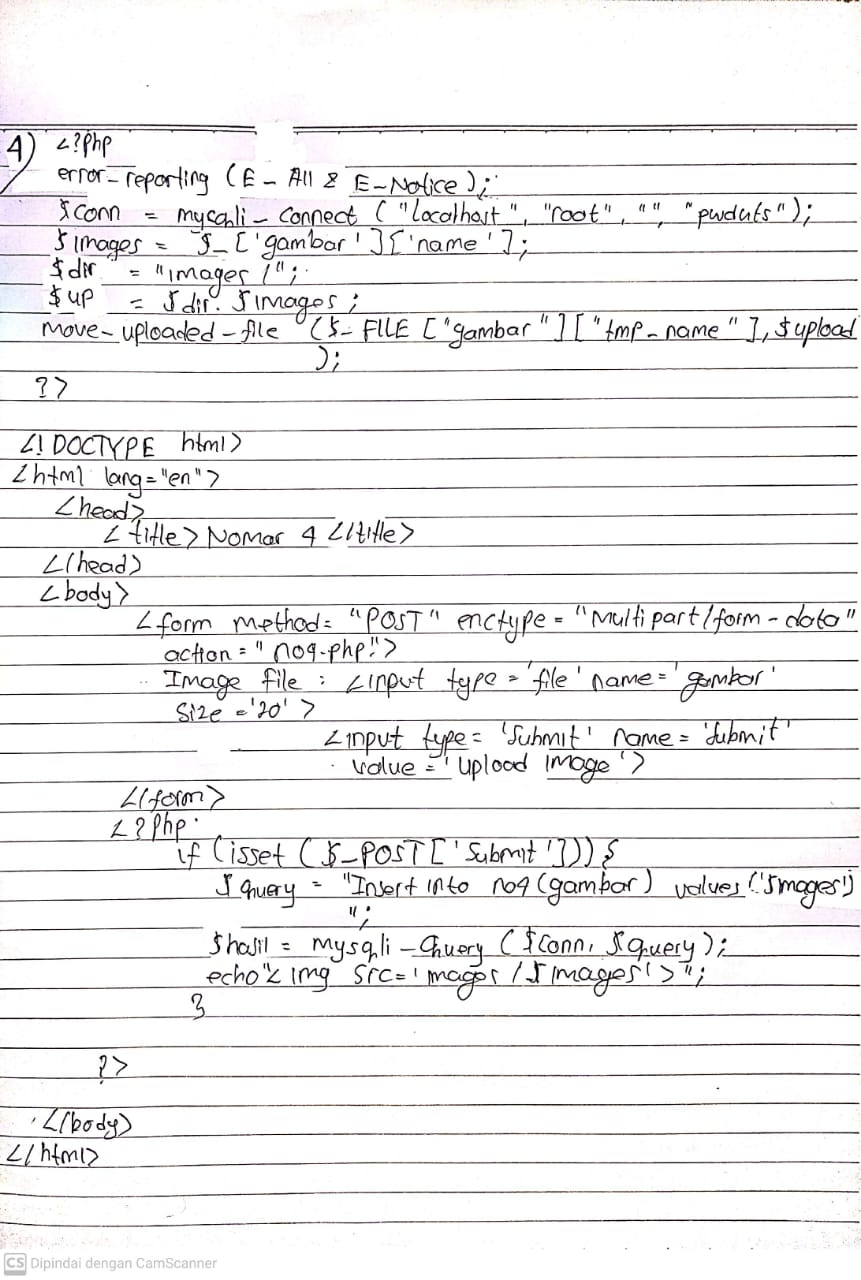 4) <?php
error_reporting (E_All & E_Notice);
$conn = mysqli_connect ("localhost", "root", "", "pwduts");
$images = $_['gambar']['name'];
$dir = "images/";
$up = $dir.$images;
move_uploaded_file ($_FILE ["gambar"]["tmp_name"], $upload
);
?>
<!DOCTYPE html>
<html lang="en">
<head>
<title> Nomor 4 </title>
</head>
<body>
<form method= "POST" enctype = "Multipart/form-data"
action = "no4.php">
Image file : <input type = 'file' name= 'gambar'
size ='20' >
<input type= 'Submit' name = 'Submit'
value = 'Upload Image'>
</form>
<?php
if (isset ($_POST ['Submit'])){
$query = "Insert into no4 (gambar) values ('$images')
";
$hasil = mysqli_query ($conn, $query);
echo"< img src= 'images/$images'>";
}
?>
</body>
</html>
CS Dipindai dengan CamScanner